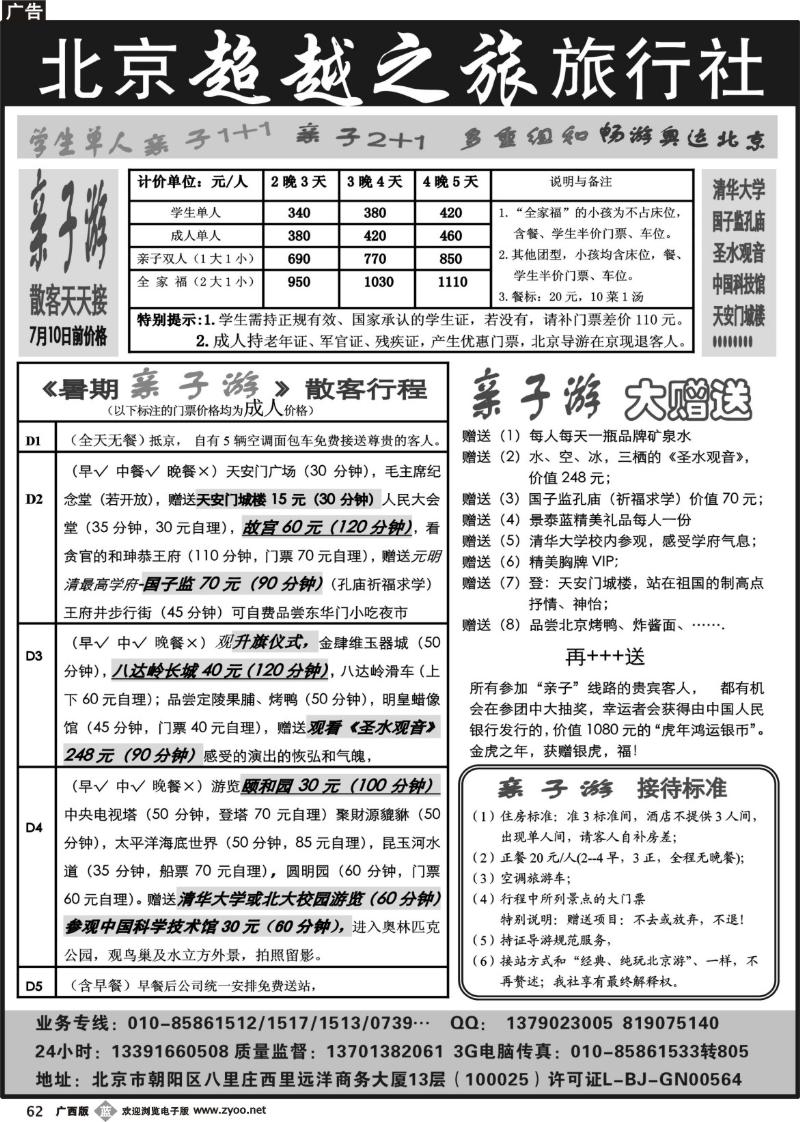 广告
北京超越之旅旅行社
学生单人 亲子1+1 亲子2+1 多重组和 畅游奥运北京
亲子游
散客天天接
7月10日前价格
计价单位：元/人 2晚3天 3晚4天 4晚5天 说明与备注
学生单人 340 380 420
成人单人 380 420 460
亲子双人（1大1小） 690 770 850
全 家 福（2大1小） 950 1030 1110
1.“全家福”的小孩为不占床位，
含餐、学生半价门票、车位。
2.其他团型，小孩均含床位，餐、
学生半价门票、车位。
3.餐标：20元，10菜1汤
特别提示：1. 学生需持正规有效、国家承认的学生证，若没有，请补门票差价110元。
2. 成人持老年证、军官证、残疾证，产生优惠门票，北京导游在京现退客人。
清华大学
国子监孔庙
圣水观音
中国科技馆
天安门城楼
《暑期 亲子游》散客行程
（以下标注的门票价格均为成人价格）
D1 （全天无餐）抵京， 自有5辆空调面包车免费接送尊贵的客人。
D2 （早√ 中餐√ 晚餐×）天安门广场（30分钟），毛主席纪
念堂（若开放），赠送天安门城楼15元（30分钟）人民大会
堂（35分钟，30元自理），故宫60元（120分钟），看
贪官的和珅恭王府（110分钟，门票70元自理），赠送元明
清最高学府-国子监70元（90分钟）（孔庙祈福求学）
王府井步行街（45分钟）可自费品尝东华门小吃夜市
D3 （早√ 中√ 晚餐×）观升旗仪式，金肆维玉器城（50
分钟），八达岭长城40元（120分钟），八达岭滑车（上
下60元自理）；品尝定陵果脯、烤鸭（50分钟），明皇蜡像
馆（45分钟，门票40元自理），赠送观看《圣水观音》
248元（90分钟）感受的演出的恢弘和气魄，
D4 （早√ 中√ 晚餐×）游览颐和园30元（100分钟）
中央电视塔（50分钟，登塔70元自理）聚财源貔貅（50
分钟），太平洋海底世界（50分钟，85元自理），昆玉河水
道（35分钟，船票70元自理），圆明园（60分钟，门票
60元自理）。赠送清华大学或北大校园游览（60分钟）
参观中国科学技术馆30元（60分钟），进入奥林匹克
公园，观鸟巢及水立方外景，拍照留影。
D5 （含早餐）早餐后公司统一安排免费送站，
亲子游 大赠送
赠送（1）每人每天一瓶品牌矿泉水
赠送（2）水、空、冰，三栖的《圣水观音》，
价值248元；
赠送（3）国子监孔庙（祈福求学）价值70元；
赠送（4）景泰蓝精美礼品每人一份
赠送（5）清华大学校内参观，感受学府气息；
赠送（6）精美胸牌VIP；
赠送（7）登：天安门城楼，站在祖国的制高点
抒情、神怡；
赠送（8）品尝北京烤鸭、炸酱面、……．
再+++送
所有参加“亲子”线路的贵宾客人， 都有机
会在参团中大抽奖，幸运者会获得由中国人民
银行发行的，价值1080元的“虎年鸿运银币”。
金虎之年，获赠银虎，福！
亲子游 接待标准
（1）住房标准：准3标准间，酒店不提供3人间，
出现单人间，请客人自补房差；
（2）正餐20元/人(2--4早，3正，全程无晚餐)；
（3）空调旅游车；
（4）行程中所列景点的大门票
特别说明：赠送项目：不去或放弃，不退！
（5）持证导游规范服务，
（6）接站方式和“经典、纯玩北京游”、一样，不
再赘述；我社享有最终解释权。
业务专线：010-85861512/1517/1513/0739… QQ： 1379023005 819075140
24小时：13391660508 质量监督：13701382061 3G电脑传真：010-85861533转805
地址：北京市朝阳区八里庄西里远洋商务大厦13层（100025）许可证L-BJ-GN00564
62 广西版 蓝 欢迎浏览电子版 www.zyoo.net